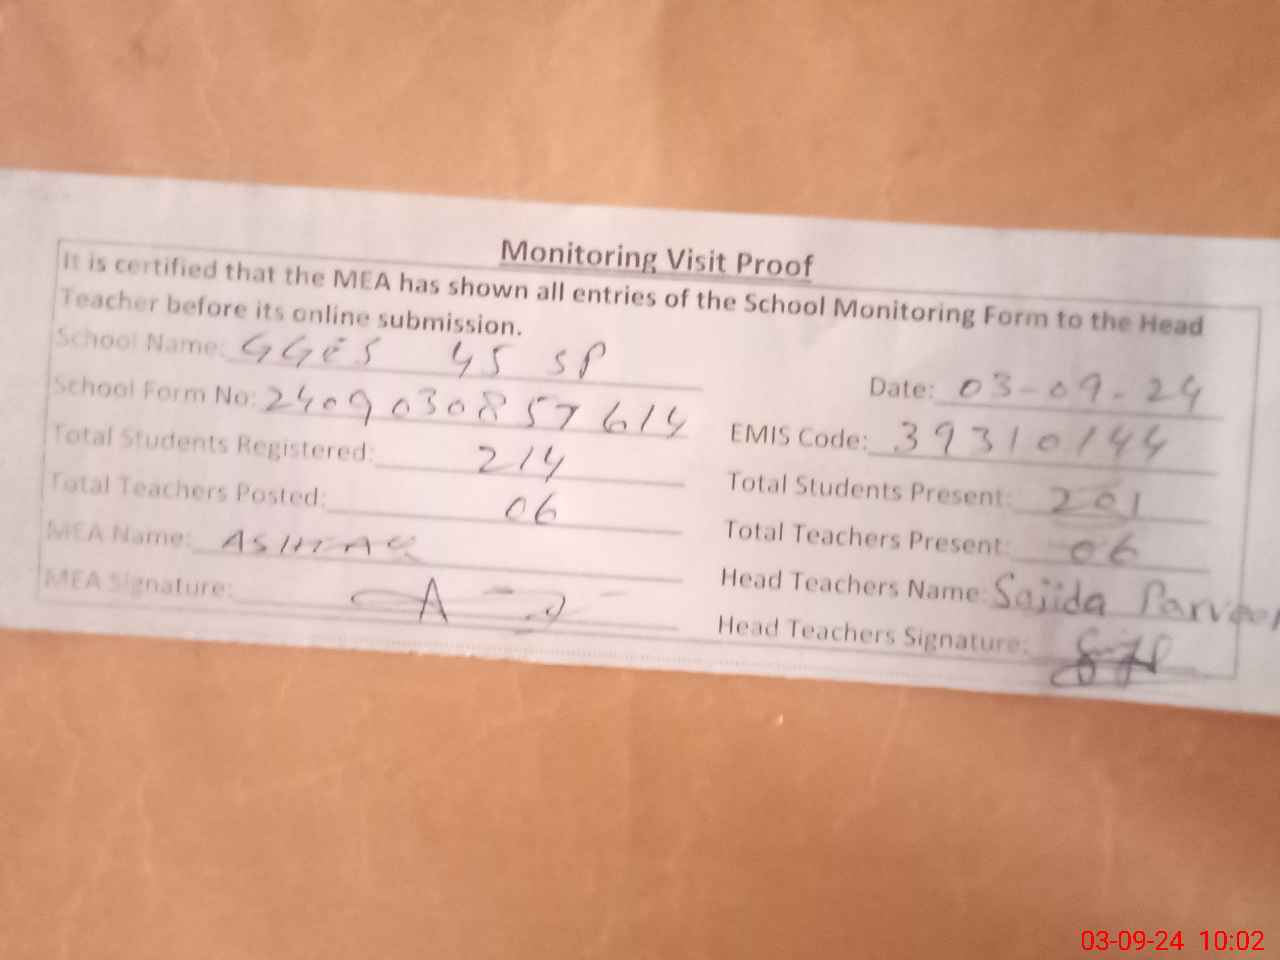 Monitoring Visit Proof
It is certified that the MEA has shown all entries of the School Monitoring Form to the Head
Teacher before its online submission.
School Name: GGES 45 SP
Date: 03-09-24
School Form No: 2409030857614
EMIS Code: 39310144
Total Students Registered: 214
Total Students Present: 201
Total Teachers Posted: 06
Total Teachers Present: 06
MEA Name: ASHFAQ
Head Teachers Name: Sajida Parveen
MEA Signature:
Head Teachers Signature:
03-09-24 10:02